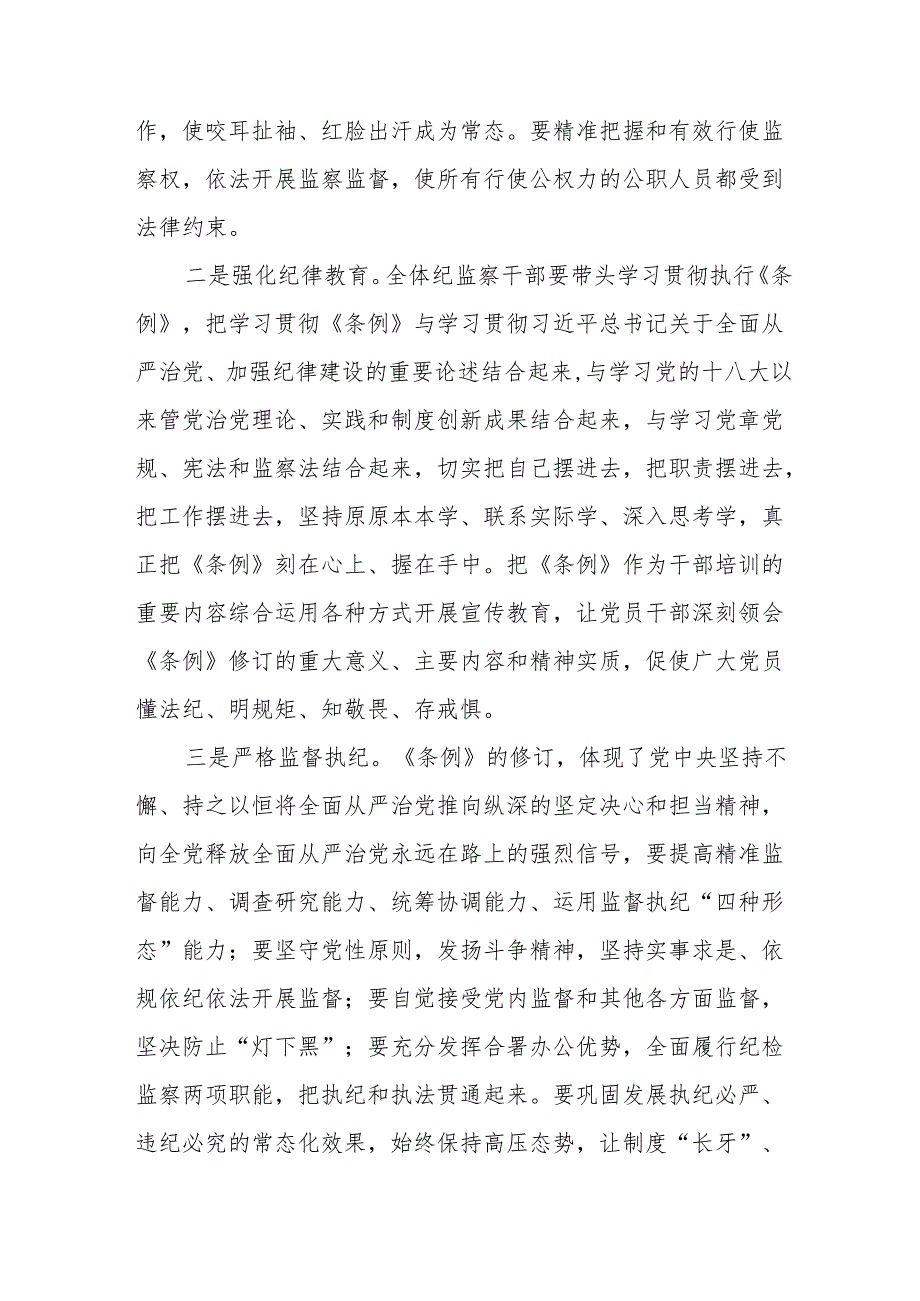 作，使咬耳扯袖、红脸出汗成为常态。要精准把握和有效行使监
察权，依法开展监察监督，使所有行使公权力的公职人员都受到
法律约束。
二是强化纪律教育。全体纪监察干部要带头学习贯彻执行《条
例》，把学习贯彻《条例》与学习贯彻习近平总书记关于全面从
严治党、加强纪律建设的重要论述结合起来,与学习党的十八大以
来管党治党理论、实践和制度创新成果结合起来，与学习党章党
规、宪法和监察法结合起来，切实把自己摆进去，把职责摆进去，
把工作摆进去，坚持原原本本学、联系实际学、深入思考学，真
正把《条例》刻在心上、握在手中。把《条例》作为干部培训的
重要内容综合运用各种方式开展宣传教育，让党员干部深刻领会
《条例》修订的重大意义、主要内容和精神实质，促使广大党员
懂法纪、明规矩、知敬畏、存戒惧。
三是严格监督执纪。《条例》的修订，体现了党中央坚持不
懈、持之以恒将全面从严治党推向纵深的坚定决心和担当精神，
向全党释放全面从严治党永远在路上的强烈信号，要提高精准监
督能力、调查研究能力、统筹协调能力、运用监督执纪“四种形
态”能力；要坚守党性原则，发扬斗争精神，坚持实事求是、依
规依纪依法开展监督；要自觉接受党内监督和其他各方面监督，
坚决防止“灯下黑”；要充分发挥合署办公优势，全面履行纪检
监察两项职能，把执纪和执法贯通起来。要巩固发展执纪必严、
违纪必究的常态化效果，始终保持高压态势，让制度“长牙”、